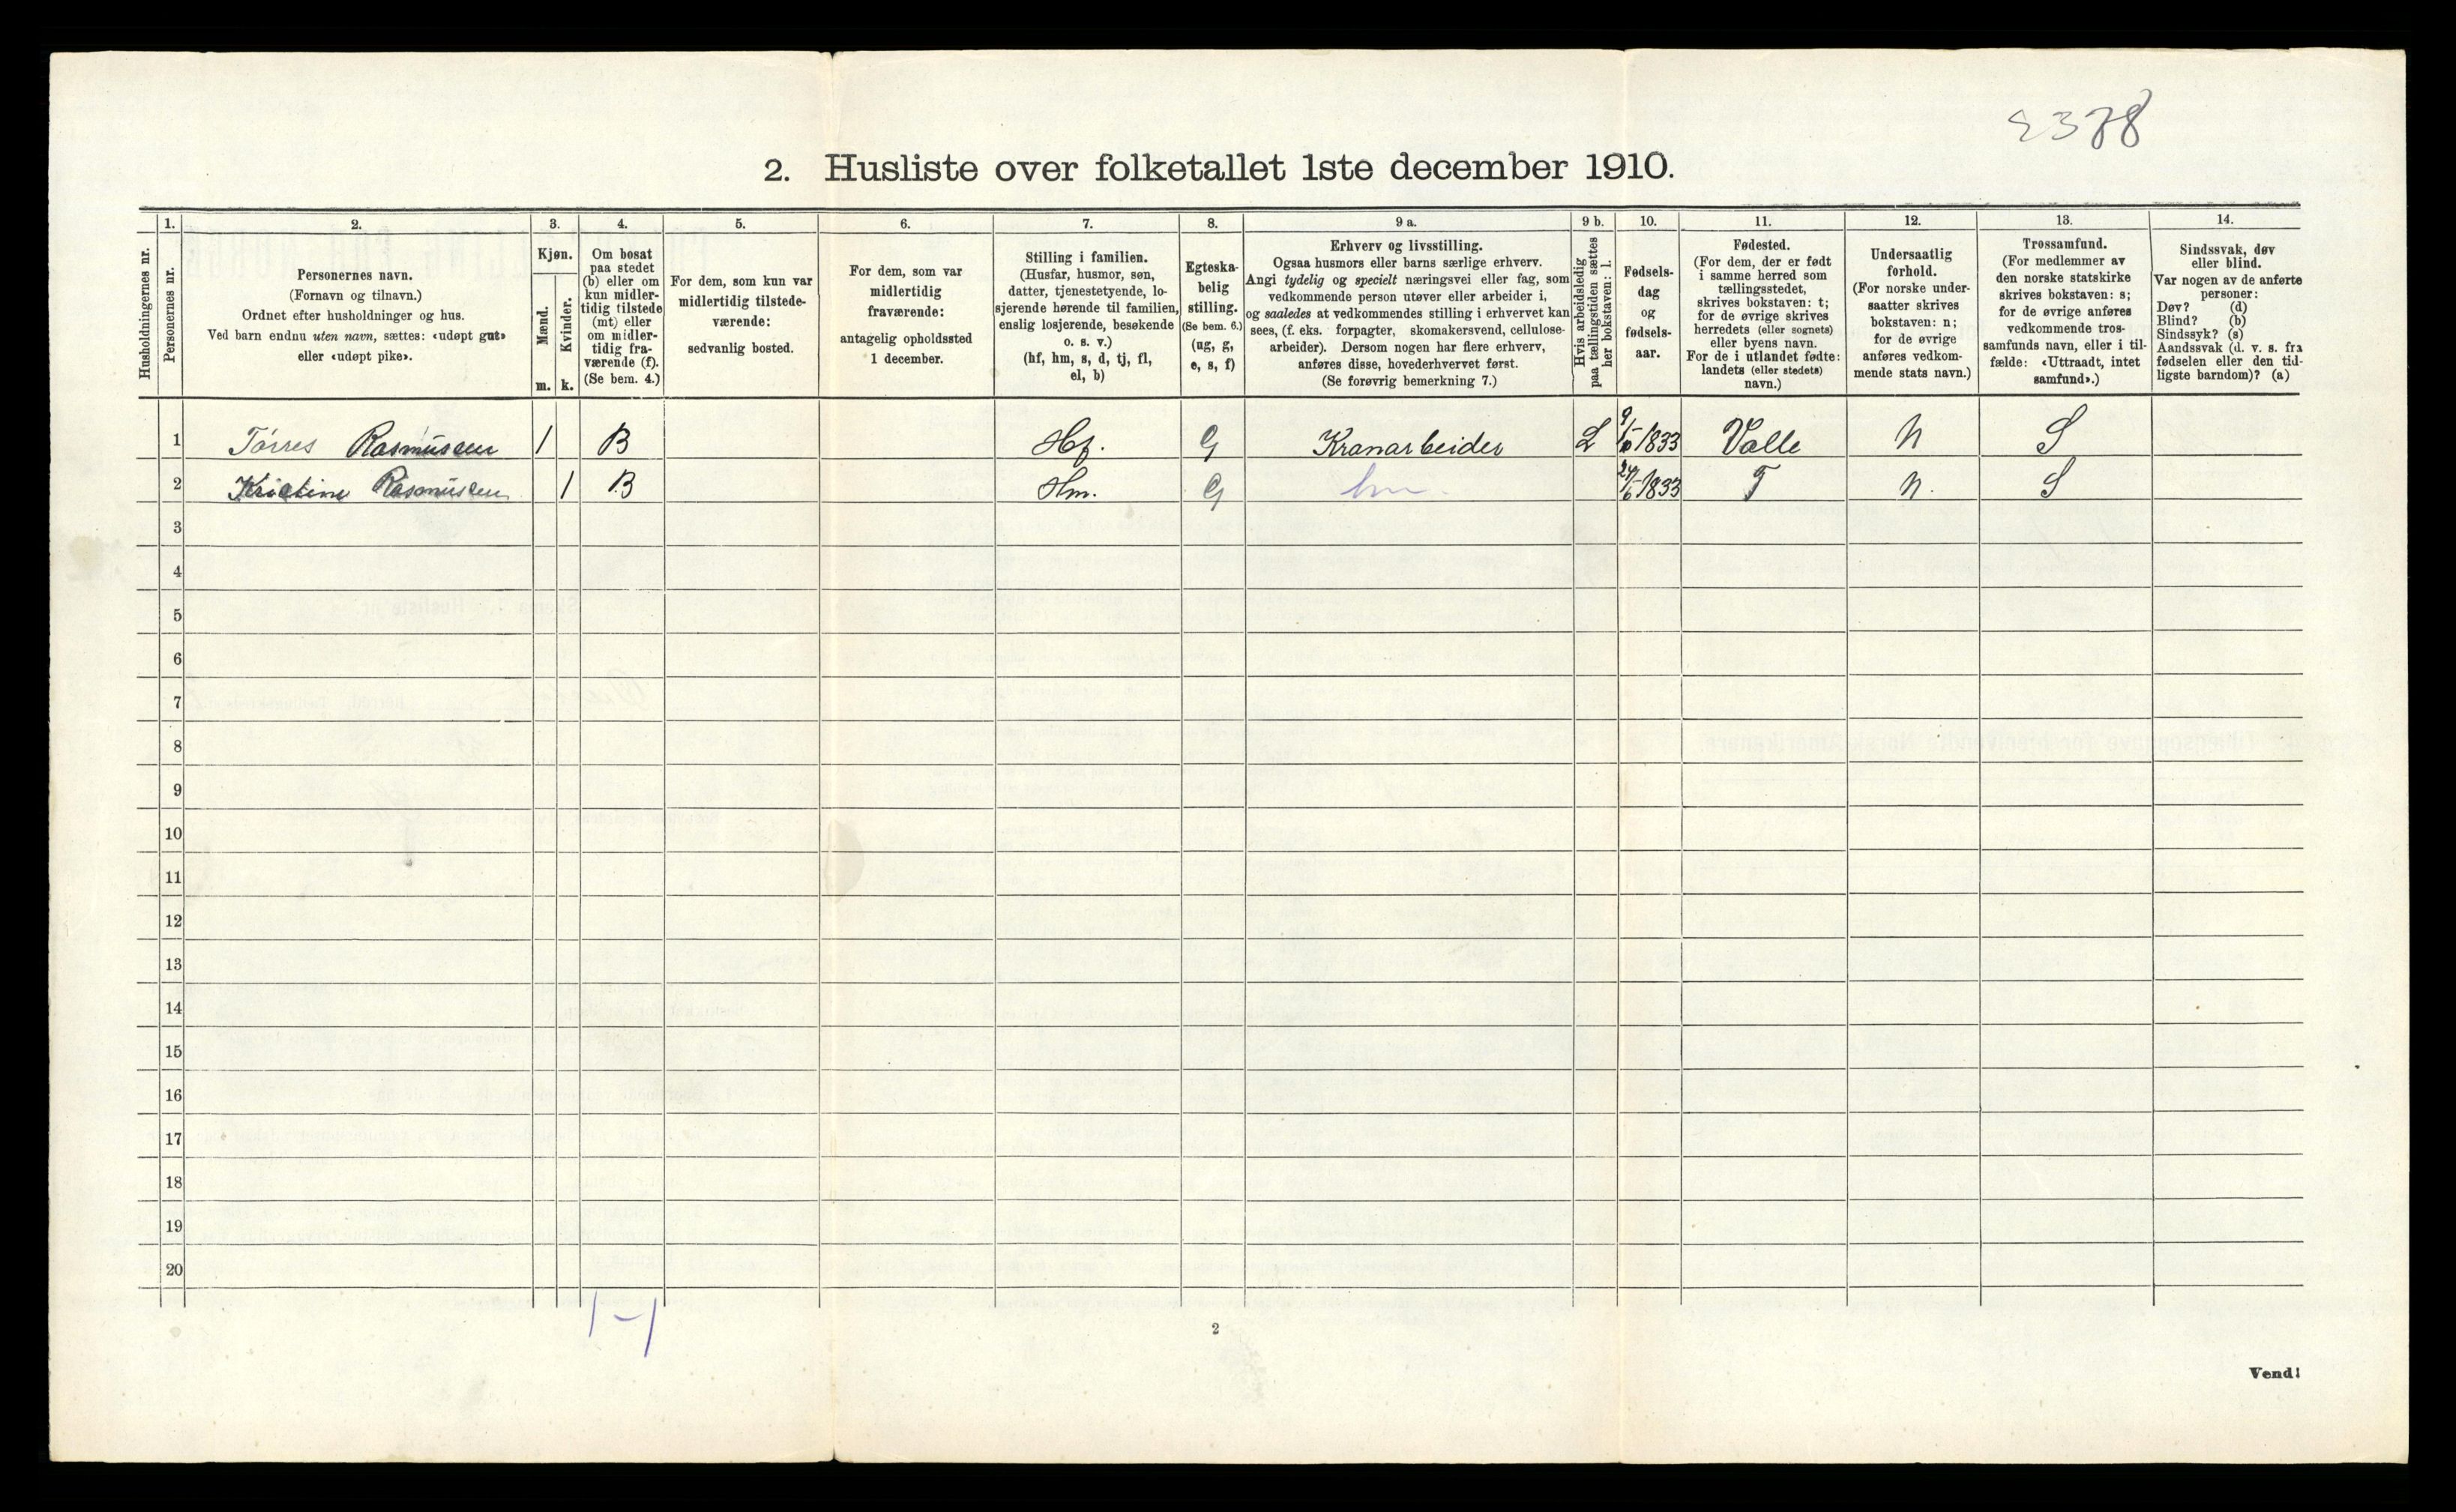 2378
2. Husliste over folketallet 1ste december 1910.
Husholdningernes nr.
1.
Personernes nr.
2.
Personernes navn.
(Fornavn og tilnavn.)
Ordnet efter husholdninger og hus.
Ved barn endnu uten navn, sættes: «udøpt gut»
eller «udøpt pike».
3.
Kjøn.
Mænd.
m.
Kvinder.
k.
4.
Om bosat
paa stedet
(b) eller om
kun midler-
tidig tilstede
(mt) eller
om midler-
tidig fra-
værende (f).
(Se bem. 4.)
5.
For dem, som kun var
midlertidig tilstede-
værende:
sedvanlig bosted.
6.
For dem, som var
midlertidig
fraværende:
antagelig opholdssted
1 december.
7.
Stilling i familien.
(Husfar, husmor, søn,
datter, tjenestetyende, lo-
sjerende hørende til familien,
enslig losjerende, besøkende
o. s. v.)
(hf, hm, s, d, tj, fl,
el, b)
8.
Egteska-
belig
stilling.
(Se bem. 6.)
(ug, g,
e, s, f)
9 a.
Erhverv og livsstilling.
Ogsaa husmors eller barns særlige erhverv.
Angi tydelig og specielt næringsvei eller fag, som
vedkommende person utøver eller arbeider i,
og saaledes at vedkommendes stilling i erhvervet kan
sees, (f. eks. forpagter, skomakersvend, cellulose-
arbeider). Dersom nogen har flere erhverv,
anføres disse, hovederhvervet først.
(Se forøvrig bemerkning 7.)
9 b.
Hvis arbeidsledig
paa tællingstiden sættes
her bokstaven: l.
10.
Fødsels-
dag
og
fødsels-
aar.
11.
Fødested.
(For dem, der er født
i samme herred som
tællingsstedet,
skrives bokstaven: t;
for de øvrige skrives
herredets (eller sognets)
eller byens navn.
For de i utlandet fødte:
landets (eller stedets)
navn.)
12.
Undersaatlig
forhold.
(For norske under-
saatter skrives
bokstaven: n;
for de øvrige
anføres vedkom-
mende stats navn.)
13.
Trossamfund.
(For medlemmer av
den norske statskirke
skrives bokstaven: s;
for de øvrige anføres
vedkommende tros-
samfunds navn, eller i til-
fælde: «Uttraadt, intet
samfund».)
14.
Sindssvak, døv
eller blind.
Var nogen av de anførte
personer:
Døv? (d)
Blind? (b)
Sindssyk? (s)
Aandssvak (d. v. s. fra
fødselen eller den tid-
ligste barndom)? (a)
1 Tørres Rasmussen 1 B Hf. G Kranarbeider L 9/10-1833 Valle N S
2 Kristine Rasmussen 1 B Hm. G hm. 24/6-1833 T N. S
3
4
5
6
7
8
9
10
11
12
13
14
15
16
17
18
19
20
1-1
2
Vend!